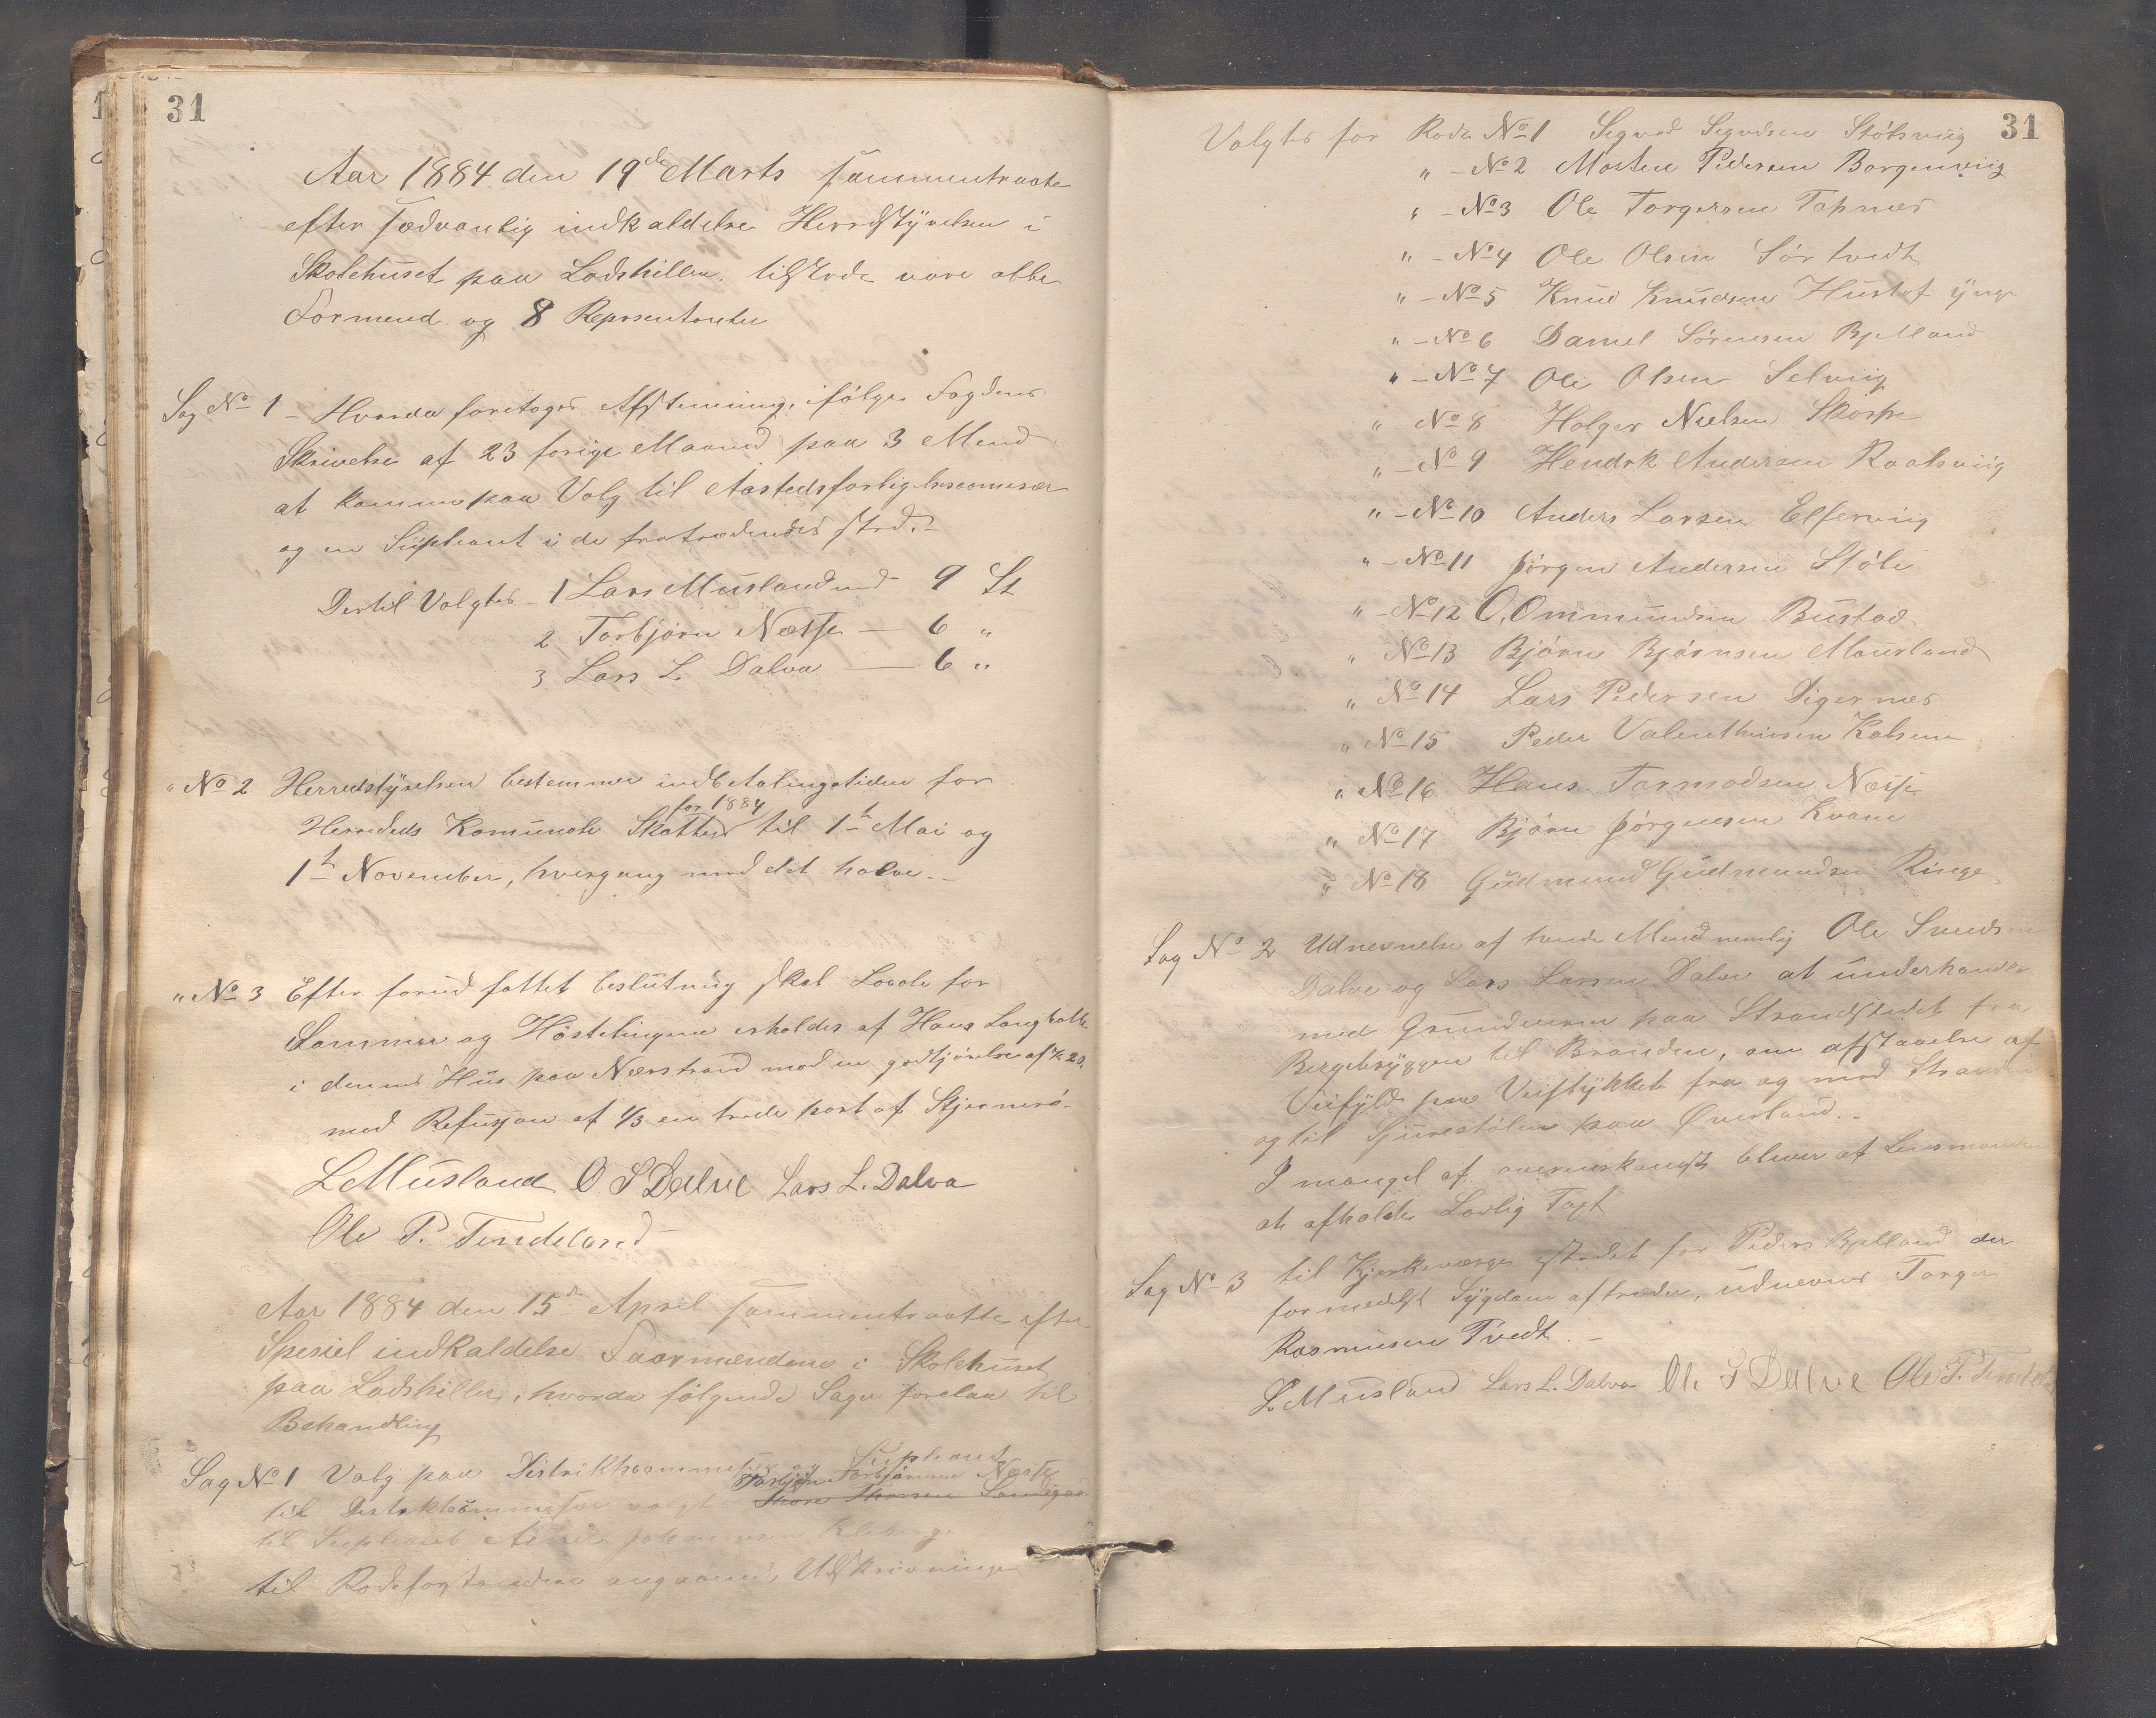 31
Aar 1884 den 19de Marts sammentraate
efter sædvanlig indkaldelse Herredstyrelsen i
Skolehuset paa Ladshillen. tilstede vare alle
Formend og 8 Represententer
Sag No 1 - Hvorda foretoges Afstemning, ifølge Fogdens
Skrivelse af 23 forige Maaned paa 3 Mend
at komme paa Valg til Aastedsforligelsescomesær
og en Supleant i de fratrædendes sted. -
Dertil Valgtes - 1 Lars Musland med 9 St
2 Torbjørn Næsse — 6 "
3 Lars L. Dalva — 6 "
" No 2 Herredstyrelsen bestemmer indbetalingstiden for
for 1884
Herredets Komunale Skatter til 1ste Mai og
1ste November, hvergang med det halve. -
" No 3 Efter forud fattet beslutning skal Locale for
Sommer og Høstetingene erholdes af Hans Langbakke
i dennes Hus paa Nærstrand mod en godtjørelse af K 20,
med Refusjon af 1/3 en trede part af Stjernerø. -
L Musland O S Dalve Lars L. Dalva
Ole P. Tendeland
Aar 1884 den 15de April sammentraatte efter
Spesiel indkaldelse Foormændene i Skolehuset
paa Ladshillen, hvorda følgende Sager forelaa til
Behandling
Sag No 1 Valg paa Distriktscommesær og Supleant
Torbjørn Torbjørnsen Næsse
til Destriktscommesær valgt
til Supleant
til Rodefogtender angaaende Udskrivninge
31
Valgtes for Rode No 1 Sigvad Sigvdsen Stølsviig
" - No 2 Mosten Pedersen Borgenviig
" - No 3 Ole Torgersen Tapnes
" - No 4 Ole Olsen Sørtvedt
" - No 5 Knud Knudsen Hustof yngr
" - No 6 Daniel Sørensen Bjelland
" - No 7 Ole Olsen Selviig
" No 8 Holger Nielsen Skorpe
" - No 9 Hendrk Andersen Raalsviig
" - No 10 Anders Larsen Elferviig
" - No 11 Jørgen Andersen Støle
" - No 12 O, Ommundsen Bustad
" No 13 Bjørn Bjørnsen Mausland
" No 14 Lars Pedersen Digernes
" No 15 Peder Valenthinsen Kalsem
" No 16 Hans Tormodsen Næsse
" No 17 Bjørn Jørgensen Kvame
" No 18 Gudmund Gudmundsen Ringe
Sag No 2 Udnevnelse af tvende Mend nemlig Ole Svendsen
Dalve og Lars Larsen Dalve at underhandle
med Grundeierne paa Strandstedet fra
Bergebryggen til Branden, om afstaaelse af
Veifyld paa Veistykket fra og med Stranden
og til Sjurestølen paa Øverland. -
I mangel af overenskomst bliver af Lensmanden
at afholde Lovlig Taxt
Sag No 3 til Kjerkeverge istedet for Peders Bjelland der
formedelst Sygdom aftræder, udnevnes Torger
Rasmusen Tvedt. -
L. Musland Lars L. Dalva Ole S Dalve Ole P. Tendeland